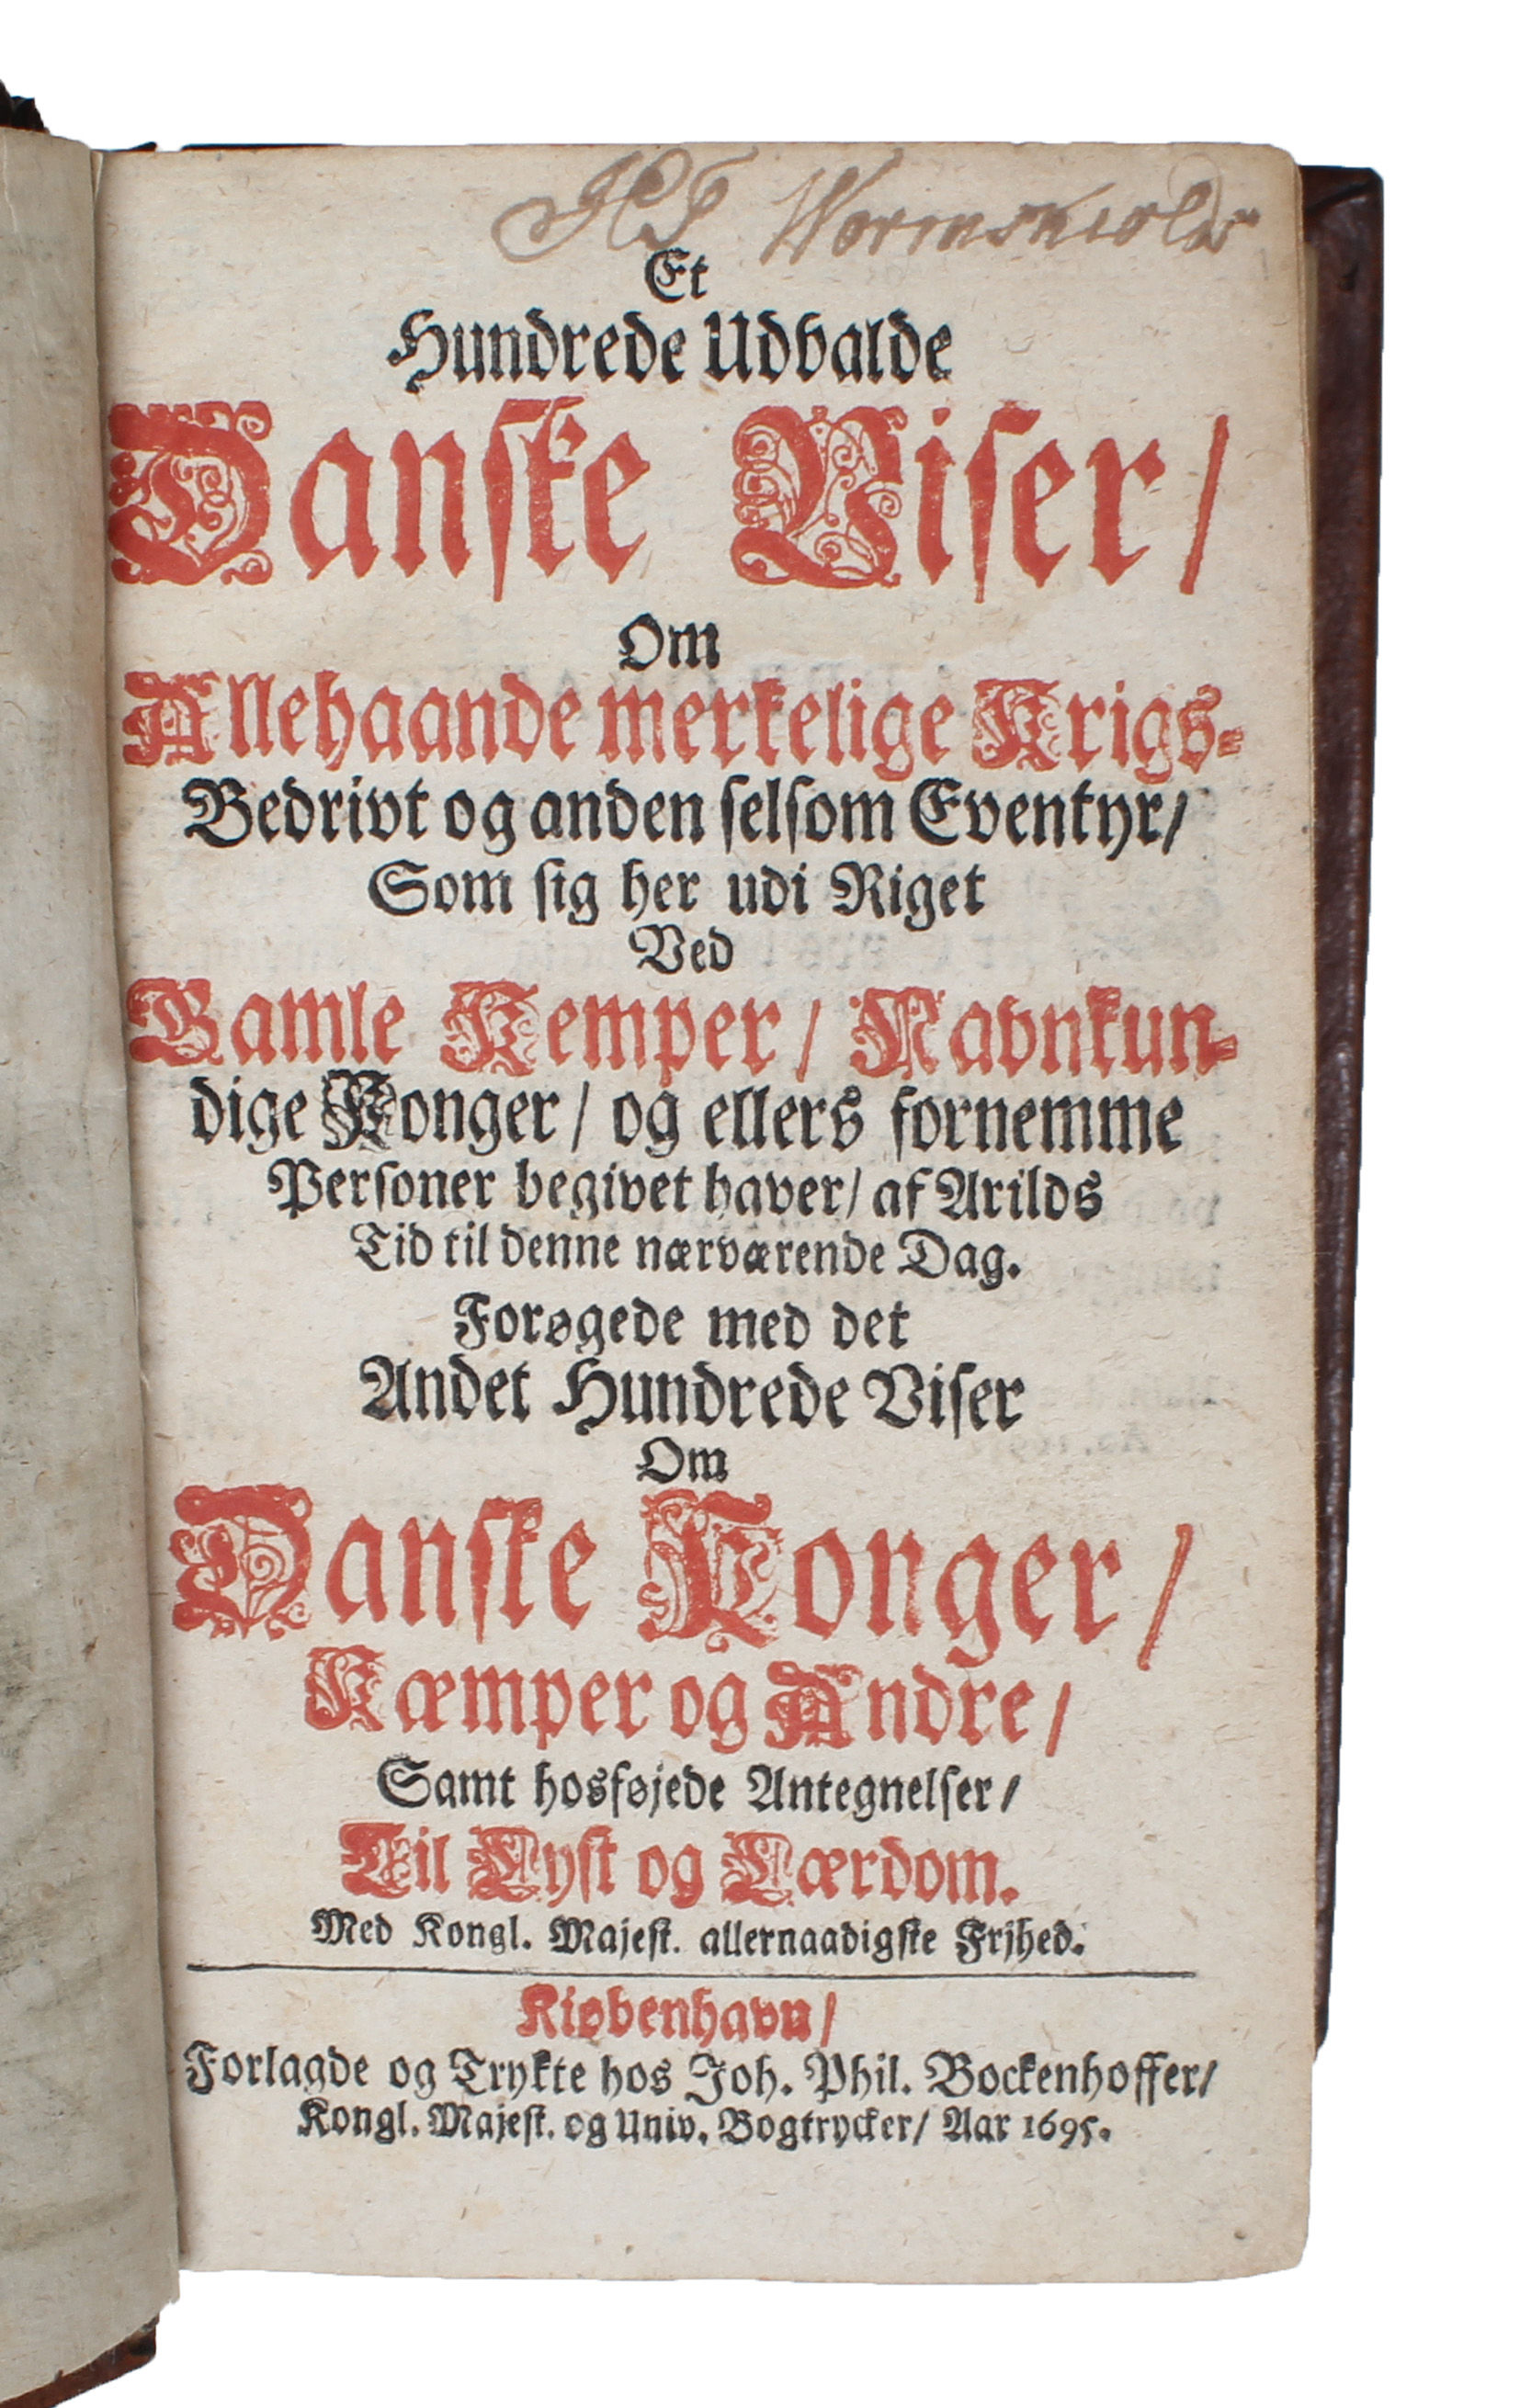 Wormskiold
Et
Hundrede Udvalde
Danske Viser/
Om
Allehaande merkelige Krigs-
Bedrivt og anden selsom Eventyr/
Som sig her udi Riget
Ved
Gamle Kemper/ Navnkun-
dige Konger/ og ellers fornemme
Personer begivet haver/ af Arilds
Tid til denne nærværende Dag.
Forøgede med det
Andet Hundrede Viser
Om
Danske Konger/
Kæmper og Andre/
Samt hosføjede Antegnelser/
Til Lyst og Lærdom.
Med Kongl. Majest. allernaadigste Frjhed.
Kiøbenhavn/
Forlagde og Trykte hos Joh. Phil. Bockenhoffer/
Kongl. Majest. og Univ. Bogtrycker/ Aar 1695.